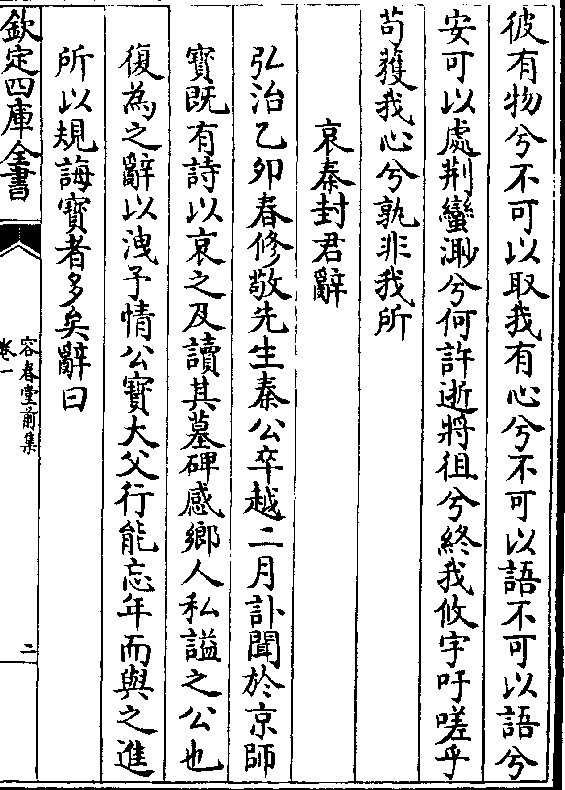 彼有物兮不可以取我有心兮不可以語不可以語兮
安可以處荆蠻渺兮何許逝將徂兮終我攸宇吁嗟乎
苟獲我心兮孰非我所
哀秦封君辭
弘治乙卯春修敬先生秦公卒越二月訃聞於京師
寳既有詩以哀之及讀其墓碑感鄉人私謚之公也
復為之辭以洩予情公寳大父行能忘年而與之進
所以規誨寳者多矣辭曰
欽定四庫全書
容春堂前集
卷一
二